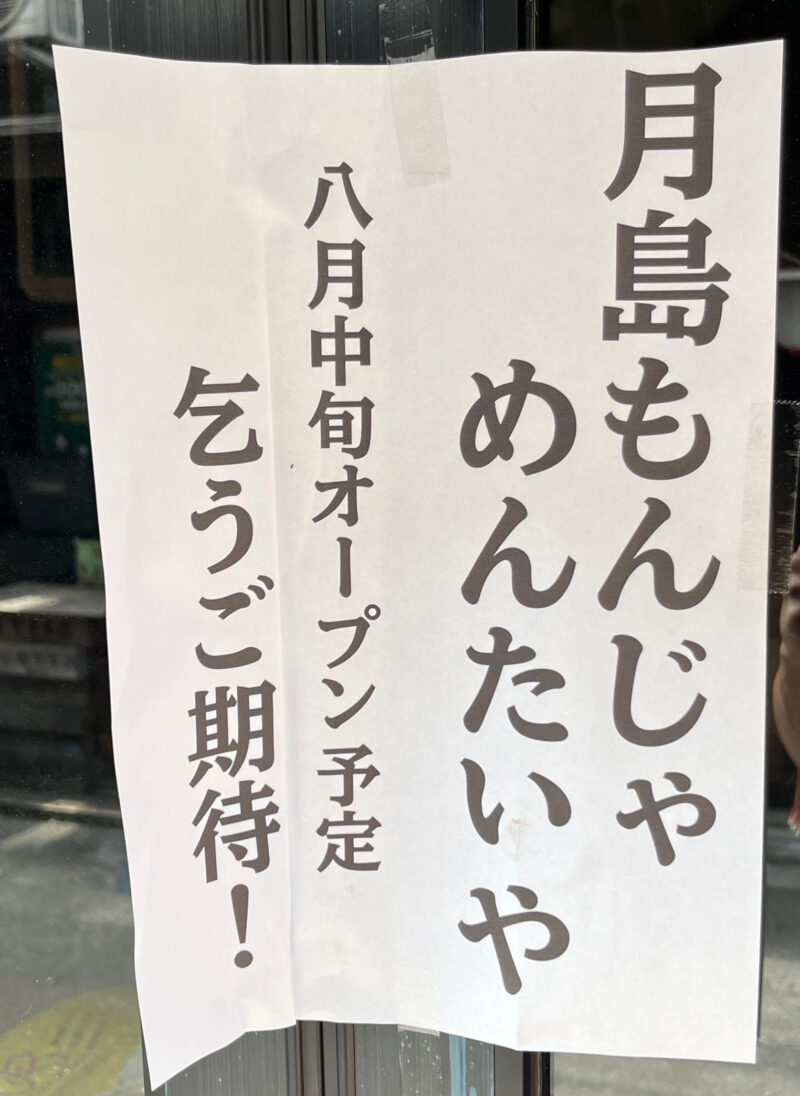 月島もんじゃ
めんたいや
八月中旬オープン予定
乞うご期待！